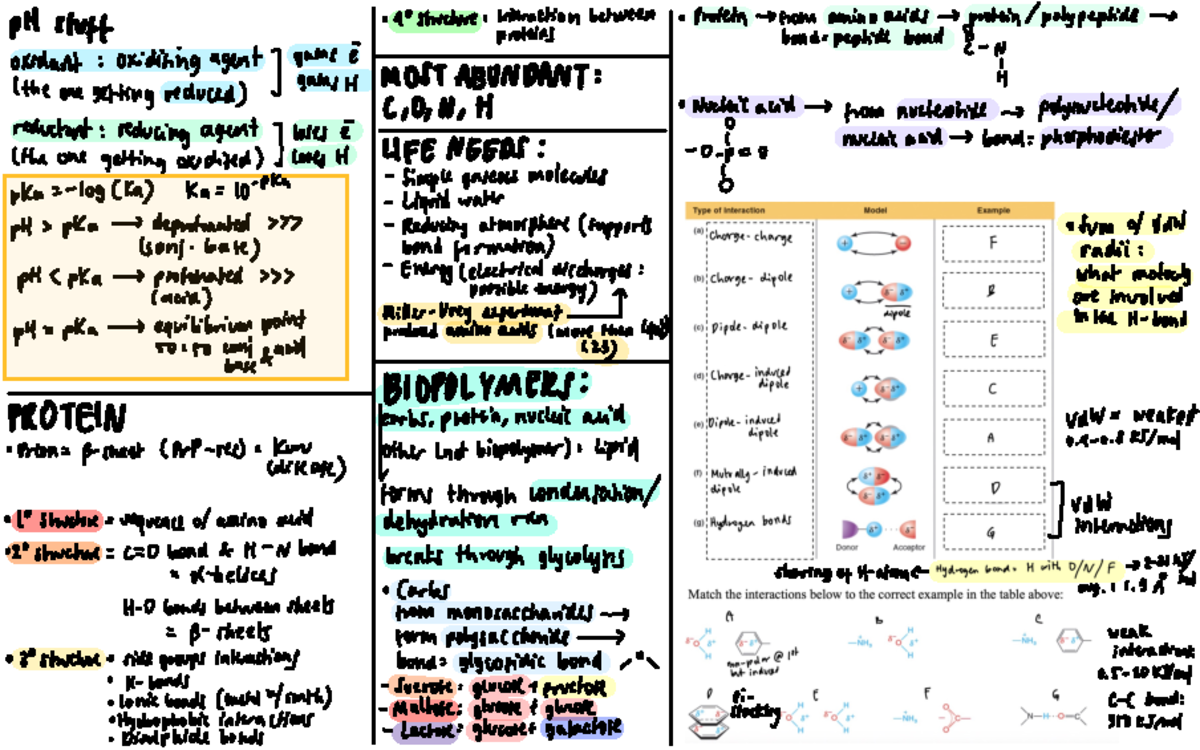 pH stuff
oxidant : oxidizing agent
(the one getting reduced)
gains e⁻
gains H
reductant : reducing agent
(the one getting oxidized)
loses e⁻
loses H
pKa = -log (Ka) Ka = 10^-pKa
pH > pKa → deprotonated >>>
(conj. base)
pH < pKa → protonated >>>
(acid)
pH = pKa → equilibrium point
50:50 conj
base & acid
PROTEIN
• Prion = β-sheet (PrP-res) = Kuru
(disease)
• 1° structure = sequence of amino acid
• 2° structure = C=O bond & H-N bond
= α-helices
H-O bonds between sheets
= β-sheets
• 3° structure = side groups interactions
• H-bonds
• Ionic bonds (metal w/
• Hydrophobic interactions
• Disulphide bonds
• 4° structure = interaction between
proteins
MOST ABUNDANT:
C, O, N, H
LIFE NEEDS:
- Simple gaseous molecules
- Liquid water
- Reducing atmosphere (supports
bond formation)
- Energy (electrical discharges :
possible energy)
Miller-Urey experiment
produced amino acids (more than
(23)
BIOPOLYMERS:
carbs, protein, nucleic acid
other (not biopolymer) = lipid
forms through condensation/
dehydration rxn
breaks through glycolysis
• Carbs
from monosaccharides →
form polysaccharide →
bond = glycosidic bond
- Sucrose = glucose + fructose
- Maltose = glucose + glucose
- Lactose = glucose + galactose
• Protein → from amino acids → protein / polypeptide →
bond = peptide bond
O
C - N
H
• Nucleic acid → from nucleotide → polynucleotide/
nucleic acid → bond = phosphodiester
O
-O-P=O
O
Type of Interaction Model Example
(a) Charge-charge + - F
(b) Charge-dipole + δ- δ+ B
dipole
(c) Dipole-dipole δ- δ+ δ- δ+ E
(d) Charge-induced
dipole + δ- δ+ C
(e) Dipole-induced
dipole δ- δ+ δ- δ+ A
(f) Mutually-induced
dipole δ+ δ- δ- δ+ D
(g) Hydrogen bonds G
Donor Acceptor
• Sum of VdW
radii :
what
are involved
in the H-bond
VdW = weakest
0.4-0.8 KJ/mol
VdW
interactions
sharing of H-atome Hydrogen bond = H with O/N/F →
avg. : 1.9 Å
Match the interactions below to the correct example in the table above:
A B C
non-polar @ 1st
but induced
weak
interactions
D Pi-
stacking E F G
C-C bond: